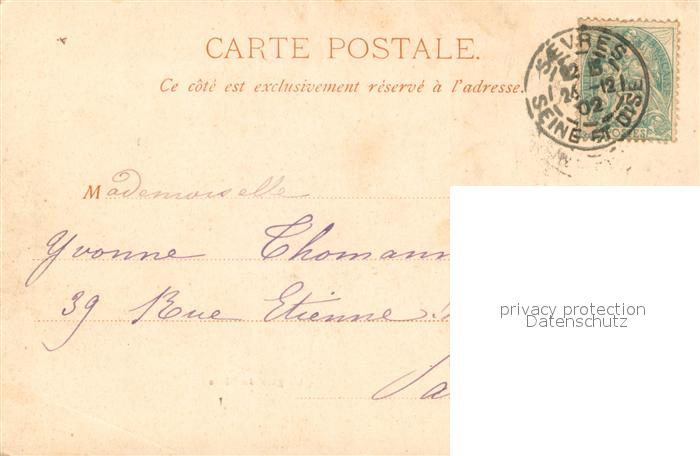 CARTE POSTALE.
Ce côté est exclusivement réservé à l'adresse.
SEVRES
12
24 -12
02
SEINE-ET-OISE
POSTES
Mademoiselle
Yvonne Thomann
39 Rue Etienne
privacy protection
Datenschutz